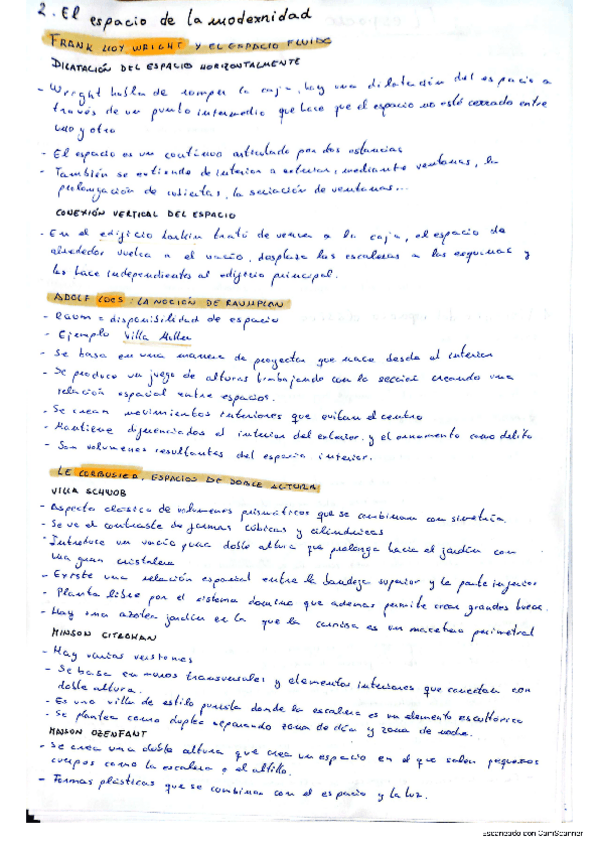 2. El espacio de la modernidad
FRANK LLOY WRIGHT Y EL ESPACIO FLUIDO
DILATACIÓN DEL ESPACIO HORIZONTALMENTE
- Wright habla de romper la caja, hay una dilatación del espacio a
través de un punto intermedio que hace que el espacio no esté cerrado entre
uno y otro
- El espacio es un continuo articulado por dos estancias
- También se extiende de interior a exterior, mediante ventanas, la
prolongación de cubiertas, la seriación de ventanas...
CONEXIÓN VERTICAL DEL ESPACIO
- En el edificio Larkin trató de vencer a la caja, el espacio de
alrededor vuelca a el vacío, desplaza las escaleras a las esquinas y
las hace independientes al edificio principal.
ADOLF LOOS: LA NOCIÓN DE RAUMPLAN
- Raum = disponibilidad de espacio
- Ejemplo Villa Müller
- Se basa en una manera de proyectar que nace desde el interior
- Se produce un juego de alturas trabajando con la sección creando una
relación espacial entre espacios.
- Se crean movimientos interiores que evitan el centro
- Mantiene diferenciados el interior del exterior y el ornamento como delito
- Son volumenes resultantes del espacio interior.
LE CORBUSIER, ESPACIOS DE DOBLE ALTURA
VILLA SCHWOB
- Aspecto clásico de volumenes prismáticos que se combinan con simetría.
- Se ve el contraste de formas cúbicas y cilíndricas
- Introduce un vacío para doble altura que prolonga hacia el jardín con
una gran cristalera
- Existe una relación espacial entre la bandeja superior y la parte inferior
- Planta libre por el sistema domino que ademas permite crear grandes huecos.
- Hay una azotea jardín en la que la cornisa es un macetero perimetral
MINSON CITROHAN
- Hay varias versiones
- Se basa en muros transversales y elementos interiores que conectan con
doble altura.
- Es una villa de estilo purista donde la escalera es un elemento escultórico
- Se plantea como duplex separando zona de día y zona de noche.
MINSON OZENFANT
- Se crea una doble altura que crea un espacio en el que salen pequeños
cuerpos como la escalera o el altillo.
- Formas plásticas que se combinan con el espacio y la luz.
Escaneado con CamScanner